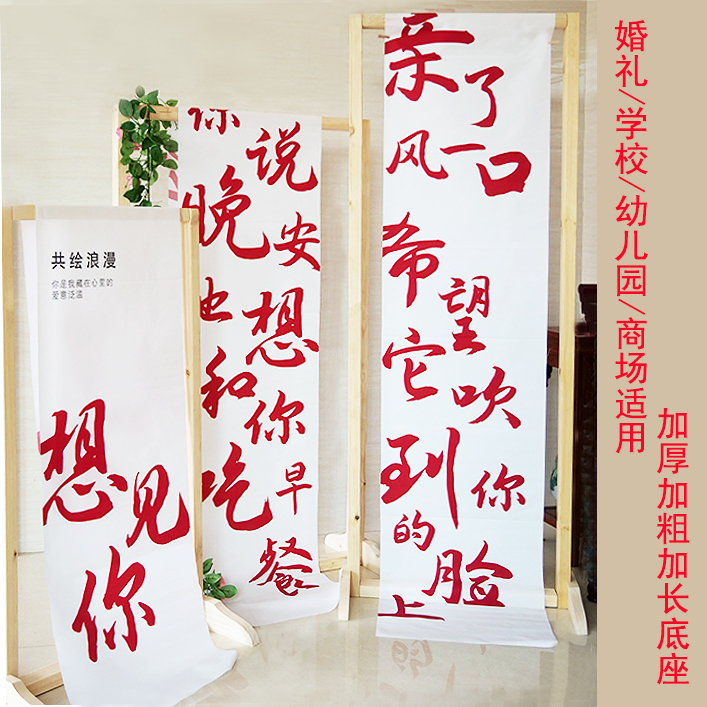 共绘浪漫
你是我藏在心里的
爱意泛滥
想见你
你说
晚安
也想
和你
吃早
餐
亲了
风一口
希望
它吹
到你
的脸
上
婚礼/学校/幼儿园/商场适用
加厚加粗加长底座